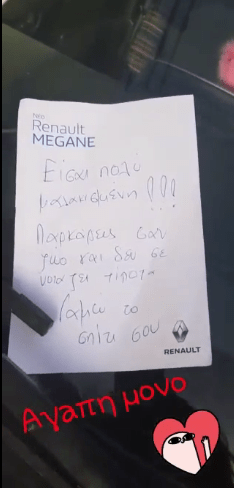 New
Renault
MEGANE
Είσαι πολύ
μαλακισμένη !!!
Παρκάρεις σαν
ζώο και δεν σε
νοιάζει τίποτα
Γαμώ το
σπίτι σου
RENAULT
Αγαπη μονο